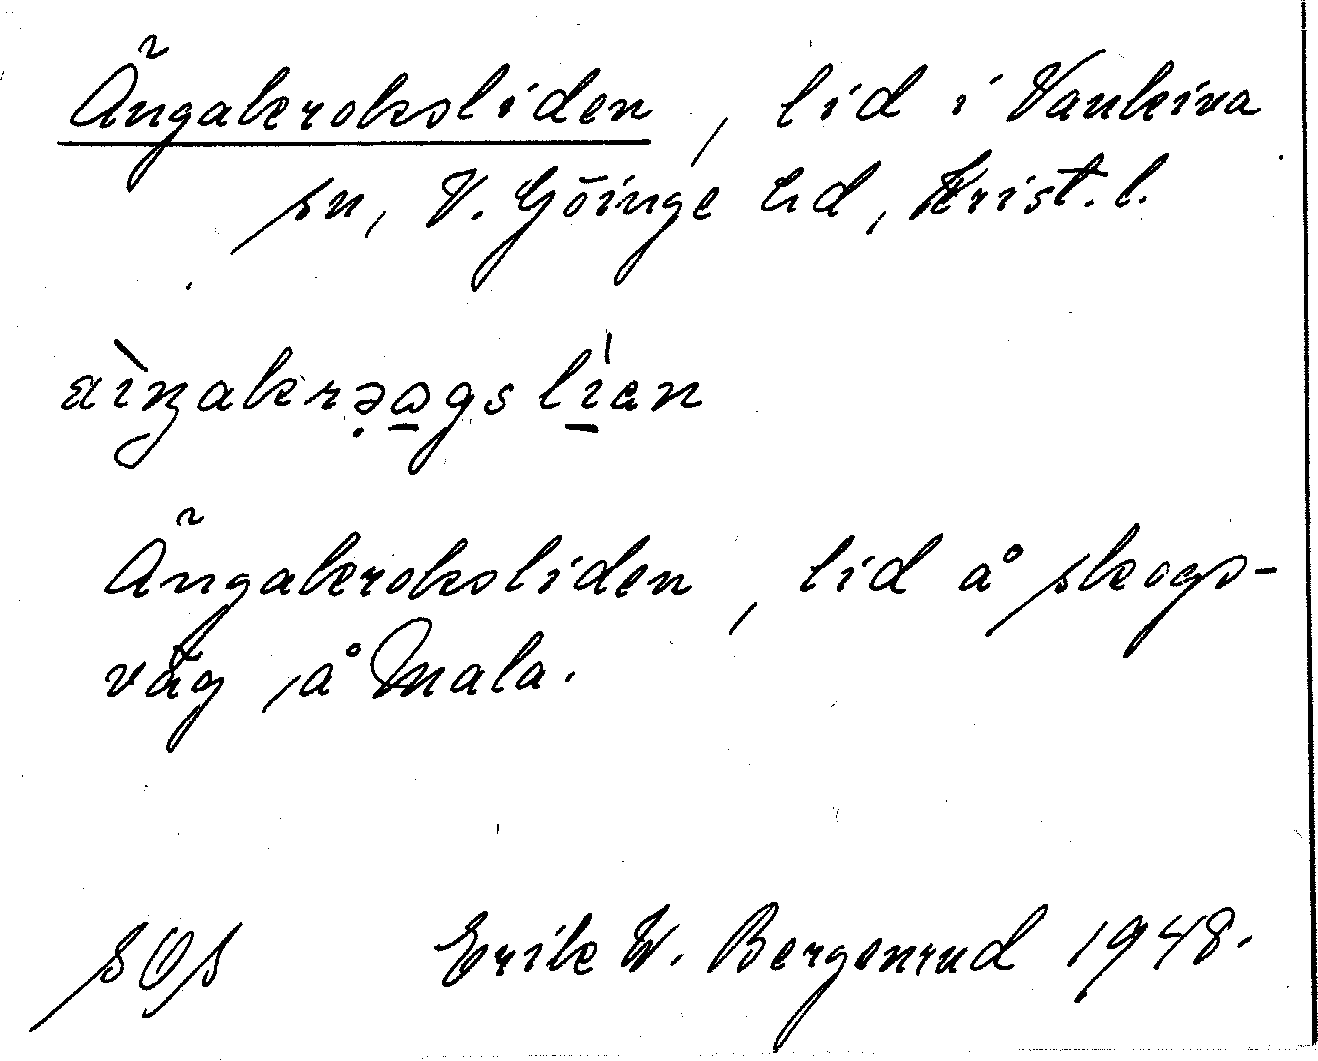 Ängakroksliden, lid i Vankiva
sn, V. Göinge hd, Krist. l.
aìŋakrəɷgslìan
Ängakroksliden, lid å skogs-
väg, å Mala.
SOS Erik W. Bergenrud 1948.